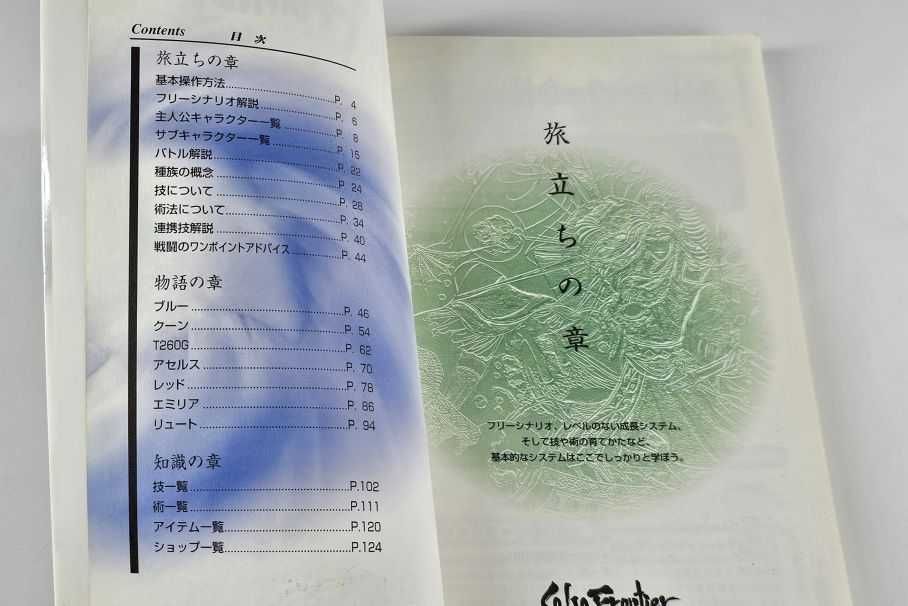 Contents 目次
旅立ちの章
基本操作方法 P. 4
フリーシナリオ解説 P. 6
主人公キャラクター一覧 P. 8
サブキャラクター一覧 P. 15
バトル解説 P. 22
種族の概念 P. 24
技について P. 28
術法について P. 34
連携技解説 P. 40
戦闘のワンポイントアドバイス P. 44
物語の章
ブルー P. 46
クーン P. 54
T260G P. 62
アセルス P. 70
レッド P. 78
エミリア P. 86
リュート P. 94
知識の章
技一覧 P.102
術一覧 P.111
アイテム一覧 P.120
ショップ一覧 P.124
旅立ちの章
フリーシナリオ、レベルのない成長システム、
そして技や術の育てかたなど、
基本的なシステムはここでしっかりと学ぼう。
SaGa Frontier